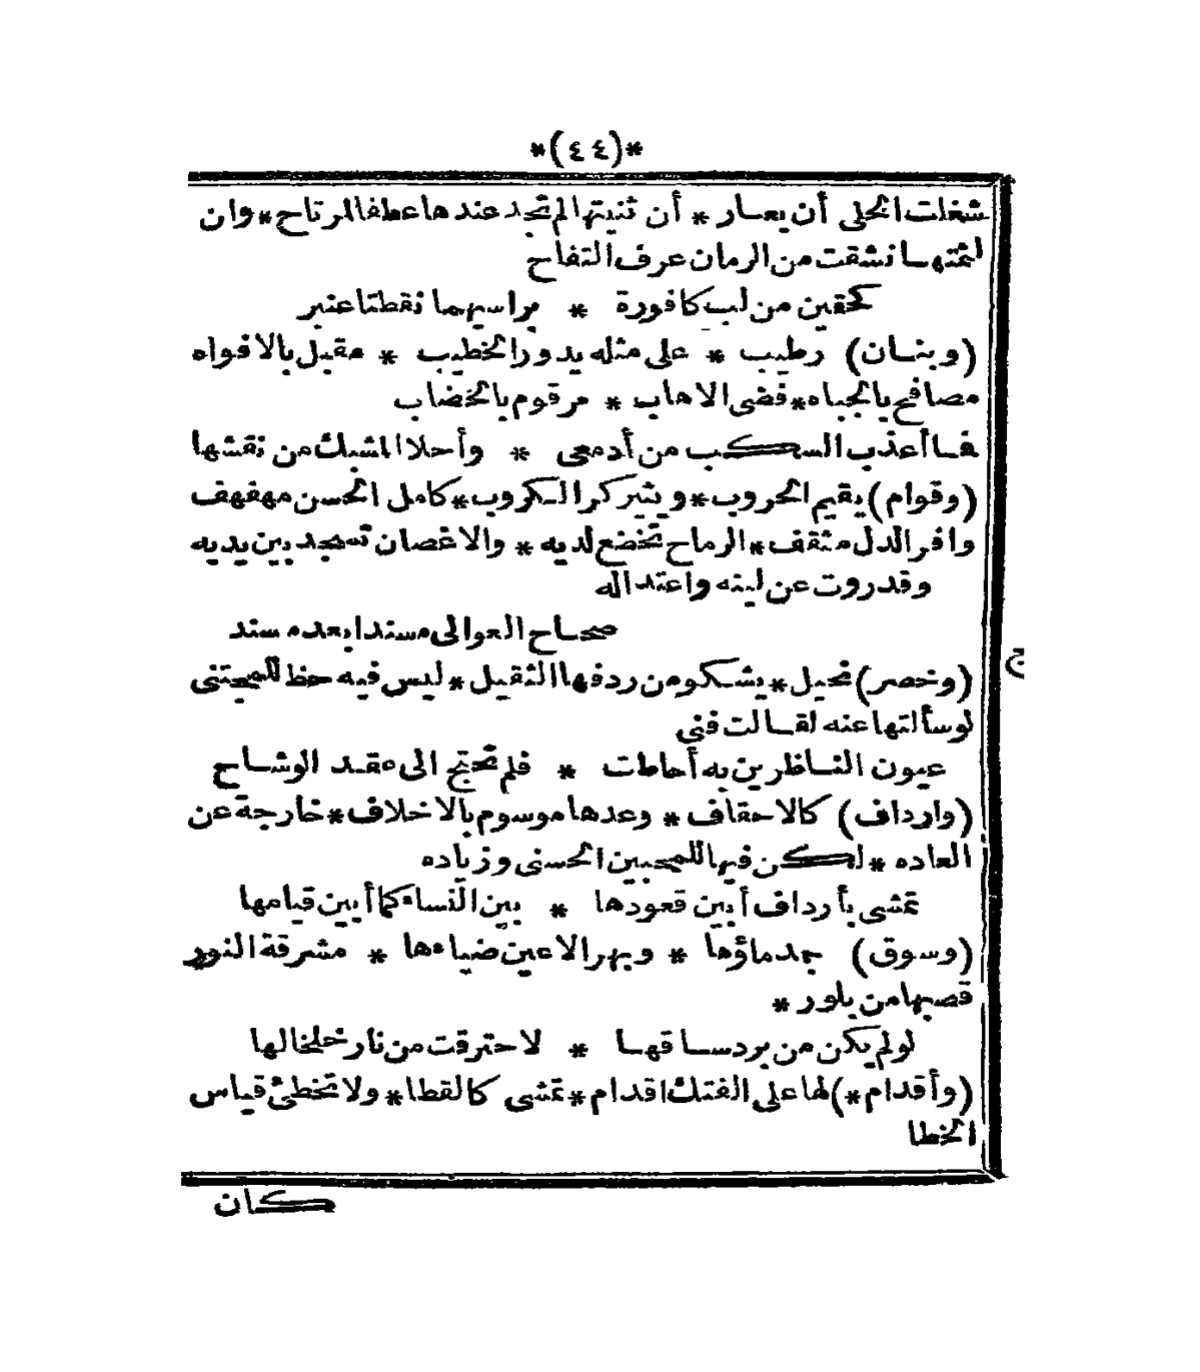 *(٤٤)*
شغلت الحلى أن يعار * أن ثنيتها لم تجد عندها عطفا لمرتاح * وان
لثمتها نشقت من الرمان عرف التفاح
كحقين من لب كافورة * براسيهما نقطتا عنبر
(وبنان) رطيب * على مثله يدور الخطيب * مقبل بالافواه
مصافح بالجباه * فضى الاهاب * مرقوم بالخضاب
فما أعذب السكب من أدمعى * وأحلا المشبك من نقشها
(وقوام) يقيم الحروب * ويثير كرا لكروب * كامل الحسن مهفهف
وافر الدل مثقف * الرماح تخضع لديه * والاغصان تسجد بين يديه
وقد روت عن لينه واعتداله
صحاح العوالى مسندا بعد مسند
(وخصر) نحيل * يشكو من ردفها الثقيل * ليس فيه حظ للمجتنى
لو سألتها عنه لقالت فنى
عيون الناظرين به أحاطت * فلم تحتج الى عقد الوشاح
(وارداف) كالاحقاف * وعدها موسوم بالاخلاف * خارجة عن
العاده * لكن فيها للمحبين الحسنى وزياده
تمشى بأرداف أبين قعودها * بين النساء كما أبين قيامها
(وسوق) جمد ماؤها * وبهر الاعين ضياءها * مشرقة النور
قصبها من بلور *
لو لم يكن من برد ساقها * لاحترقت من نار خلخالها
(وأقدام *) لها على الفتك اقدام * تمشى كالقطا * ولا تخطئ قياس
الخطا
كان